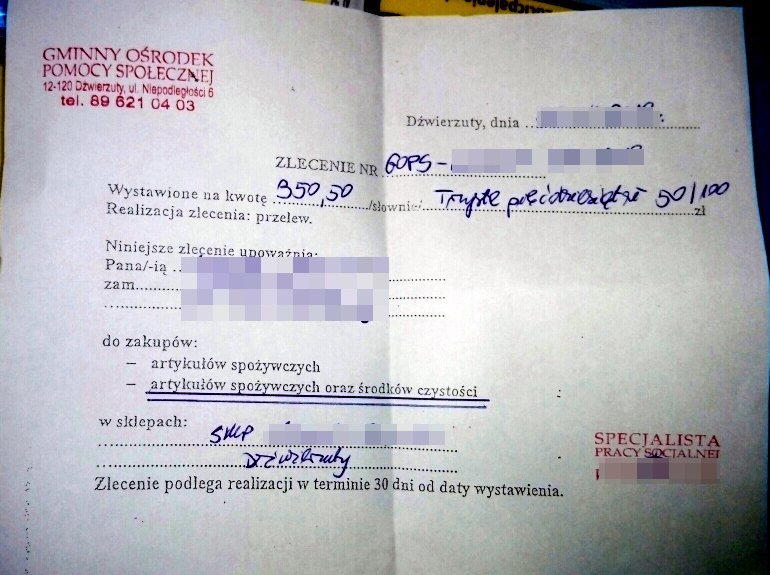 GMINNY OŚRODEK
POMOCY SPOŁECZNEJ
12-120 Dźwierzuty, ul. Niepodległości 6
tel. 89 621 04 03
Dźwierzuty, dnia
ZLECENIE NR GOPS-
Wystawione na kwotę 350,50 /słownie/ Trzysta pięćdziesiąt 50/100 zł
Realizacja zlecenia: przelew.
Niniejsze zlecenie upoważnia:
Pana/-ią
zam.
do zakupów:
– artykułów spożywczych
– artykułów spożywczych oraz środków czystości
w sklepach:
SKLEP
Dźwierzuty
SPECJALISTA
PRACY SOCJALNEJ
Zlecenie podlega realizacji w terminie 30 dni od daty wystawienia.